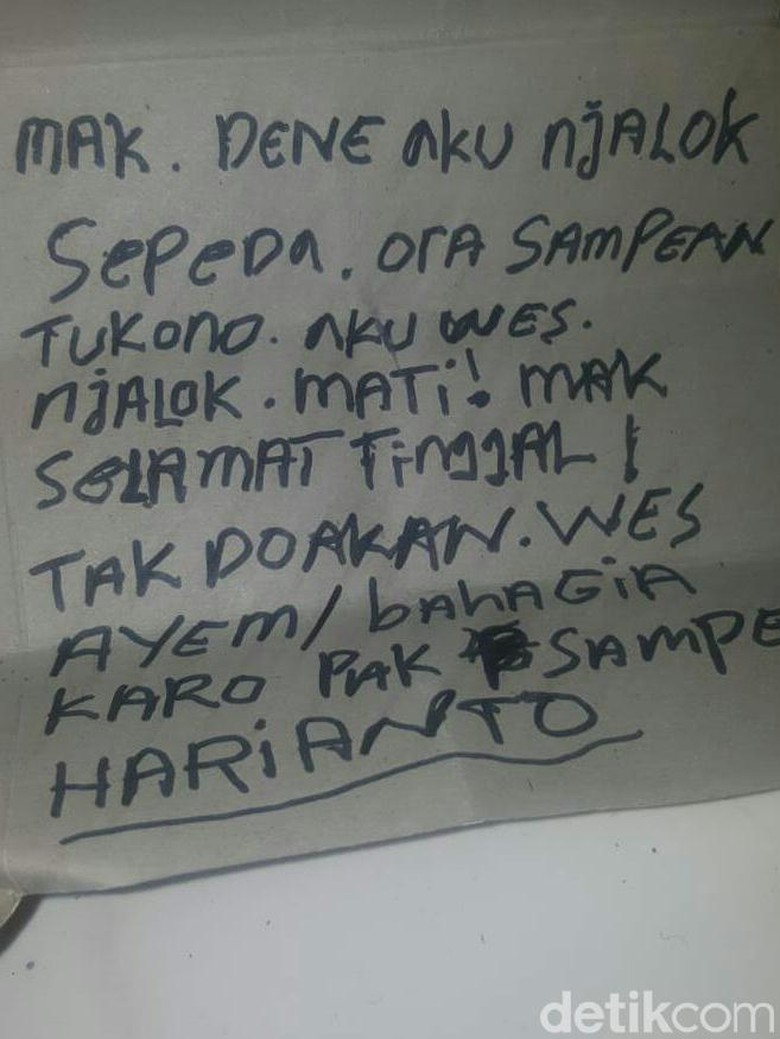 MAK. DENE AKU NJALOK
SEPEDA. ORA SAMPEAN
TUKONO. AKU WES.
NJALOK. MATI! MAK
SELAMAT TINGGAL!
TAK DOAKAN. WES
AYEM/bAHAGIA
KARO PAK SAMPE
HARIANTO
detikcom